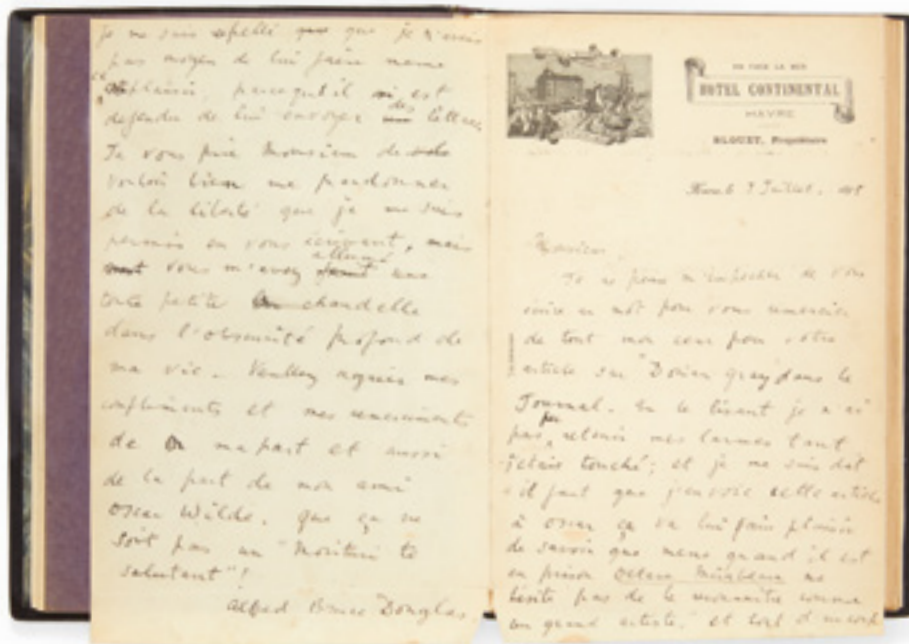 je me suis rappellé que je n'avais
pas moyen de lui faire meme
ce plaisir, parcequ'il est
defendu de lui envoyer des lettres
Je vous prie Monsieur de
vouloir bien me pardonner
de la liberté que je me suis
permis en vous écrivant, mais
vous m'avez allumé une
toute petite chandelle
dans l'obscurité profond de
ma vie. Veuillez agréer mes
compliments et mes remerciments
de ma part et aussi
de la part de mon ami
Oscar Wilde. Que ça ne
soit pas un "Morituri te
salutant"!
Alfred Bruce Douglas
EN FACE LA MER
HOTEL CONTINENTAL
HAVRE
BLOUET, Propriétaire
Juillet, 
Monsieur,
Je ne peux m'empecher de vous
écrire un mot pour vous remercier
de tout mon cœur pour votre
article sur "Dorian Gray" dans le
Journal. En le lisant je n'ai
pas pu retenir mes larmes tant
j'etais touché; et je me suis dit
il faut que j'envoie cette article
à Oscar ça va lui faire plaisir
de savoir que meme quand il est
en prison Octave Mirabeau ne
hesite pas de le reconnaitre comme
un grand artiste, et tout d'un coup